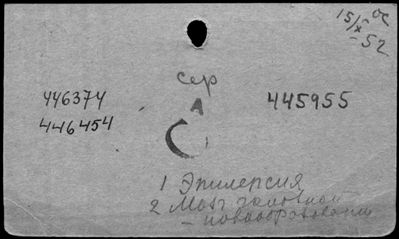 15/X ОС
- 52
сер
А
446374
446454
445955
1 Эпилепсия
2 Мозг головной
- новообразования